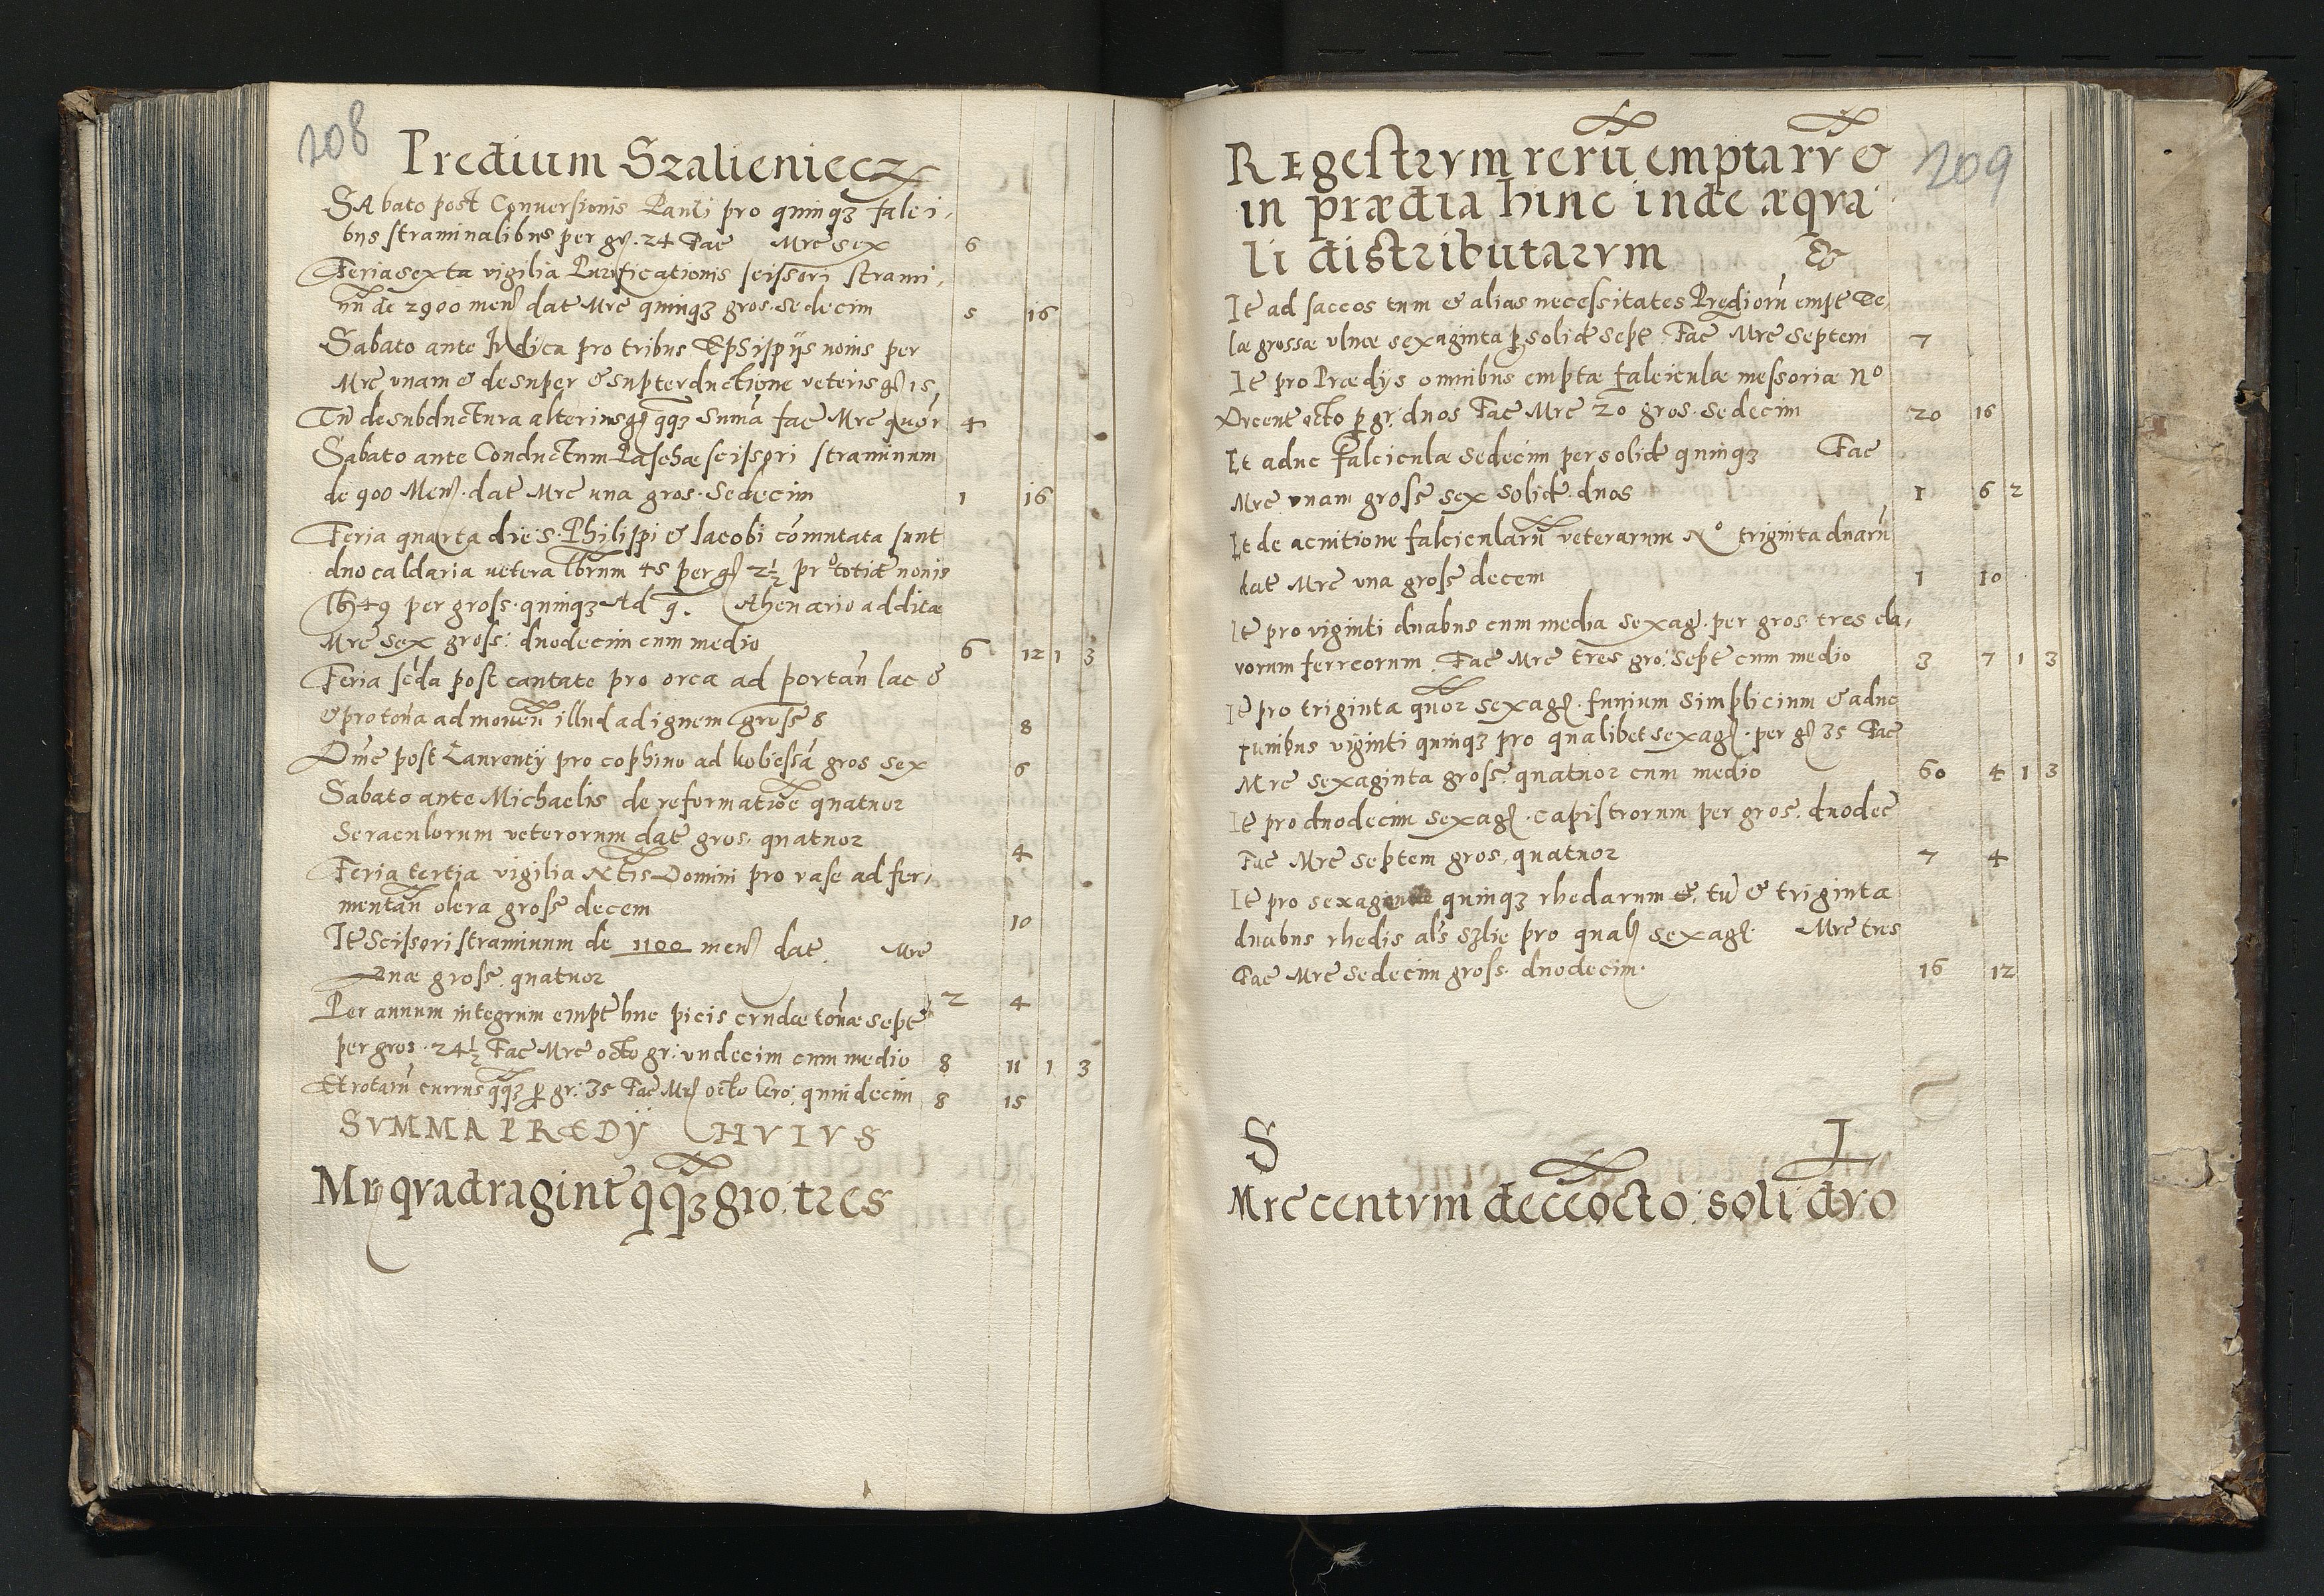 208
Predium Szalieniecz
SAbato post Conversionis Pauli pro quinqȝ falci,
bus straminalibus per gr. 24 Fac Mrc sex 6
Feria sexta vigilia Purificationis scissori strami,
nu de 2900 mens dat Mrc quinqȝ gros. sedecim 5 16
Sabato ante Judica pro tribus Epsipijs novis per
Mrc vnam & desuper & supterductione veteris gr 15
Tu de subductura alterius gr qqȝ Suma fac Mrc quor 4
Sabato ante Conductum Paschæ scissori straminum
de 900 Mens. dat Mrc una gros. Sedecim 1 16
Feria quarta dies Philippi & Iacobi comutata sunt
duo caldaria vetera lbrum 45 per gr 2½ pr totid novis
49 per gross. quinqȝ Ad q. Ahenario additæ
Mrc Sex gross: duodecim cum medio 6 12 1 3
Feria scda post cantate pro orca ad portan lac &
& pro tona ad moven illud ad ignem gross 8 8
Dnic post Laurentij pro cophino ad kobessa gros sex 6
Sabato ante Michaelis de reformatioe quatuor
Seraculorum veterorum dat gros. quatuor 4
Feria tertia vigilia Ntis Domini pro vase ad fer,
mentan olera gross decem 10
It Scissori straminum de 1100 mens dat. Mrc
duæ gross. quatuor 2 4
Per annum integrum empt huc picis crudæ tonæ sept
per gros. 24½ Fac Mrc octo gr: undecim cum medio 8 11 1 3
Et rotaru currus qqȝ p gr: 35 Fac Mr octo Gro: quindecim 8 15
SVMMA PRÆDIJ HVIVS
Mr qvadragint qqȝ gro: tres
209
REgestrvm reru emptarv &
in prædia hinc inde æqva
li distributarvm &
It ad saccos tum & alias necessitates Prediorum empt Te,
læ grossæ vlnæ sexaginta p solid sept. Fac Mrc septem 7
It pro Prædijs omnibus emptæ falciculæ messoriæ No
Ducent octo p gr: duos Fac Mrc 20 gros. sedecim 20 16
It aduc falciculæ sedecim per solid quinqȝ Fac
Mrc vnam gross sex solid. duos 1 6 2
It de acuitione falcicularu veterarum No triginta duaru
dat Mrc vna gross decem 1 10
It pro viginti duabus cum media sexag. per gros tres cla,
vorum ferreorum. Fac Mrc tres gro: sept cum medio 3 7 1 3
It pro triginta quor sexag. funium simplicium & aduc
funibus viginti quinqȝ pro qualibet sexag. per gr 35 Fac
Mrc sexaginta gross. quatuor cum medio 60 4 1 3
It pro duodecim sexag. capistrorum per gros. duodec
Fac Mrc septem gros. quatuor 7 4
It pro sexagenis quinqȝ rhedarum & tu & triginta
duabus rhedis als szlie pro qual sexag. Mrc tres
Fac Mrc sedecim gross. duodecim. 16 12
S I
Mrc centvm deceocto: soli dvo